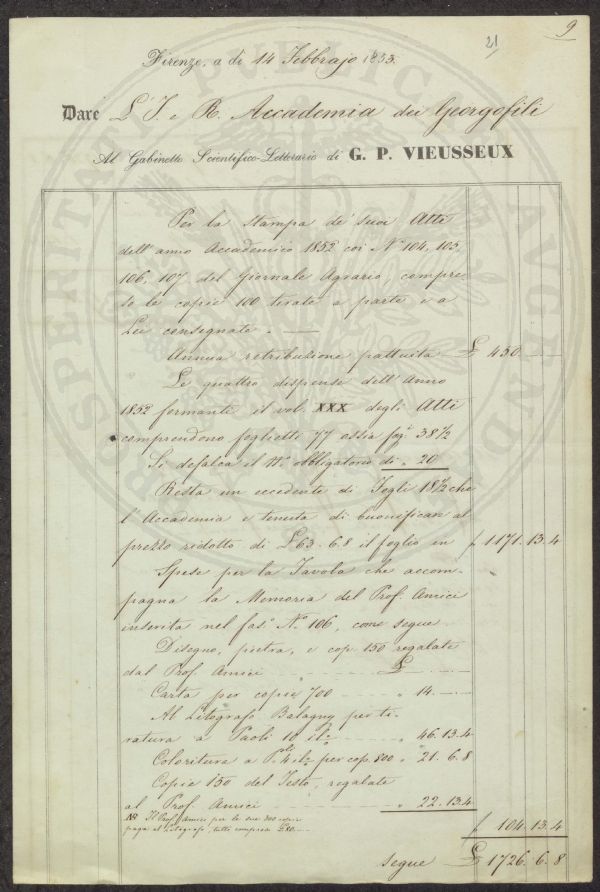 9
21
Firenze, a di 14 Febbrajo 1853.
Dare L'I. e R. Accademia dei Georgofili
Al Gabinetto Scientifico-Letterario di G. P. VIEUSSEUX
Per la stampa de' suoi Atti
dell'anno Accademico 1852 coi Nⁱ 104, 105,
106, 107 del Giornale Agrario, compre
se le copie 100 tirate a parte e a
Lei consegnate. —
Annua retribuzione pattuita £ 450 —
Le quattro dispense dell'Anno
1852 formante il vol. XXX degli Atti
comprendono foglietti 77 ossia fogⁱ 38 1/2
Si defalca il Nº obbligatorio di „ 20
Resta un eccedente di Fogli 18 1/2 che
l'Accademia è tenuta di buonificare al
prezzo ridotto di £ 63. 6. 8 il foglio in £ 1171. 13. 4
Spese per la Tavola che accom-
pagna la Memoria del Prof. Amici
inserita nel fasº Nº 106, come segue
Disegno, pietra, e cop. 150 regalate
dal Prof. Amici £ —
Carta per copie 700 „ 14. —
Al Litografo Balagny per ti-
ratura a Paoli 10 il % „ 46. 13. 4
Coloritura a Pˡⁱ 4 il % per cop. 800 „ 21. 6. 8
Copie 150 del Testo, regalate
al Prof. Amici „ 22. 13. 4
NB Il Prof. Amici per le sue 300
paga al Litografo, tutto compreso £ 80. —
£ 104. 13. 4
segue £ 1726. 6. 8
PROSPERITATI PUBLICAE AUGENDAE